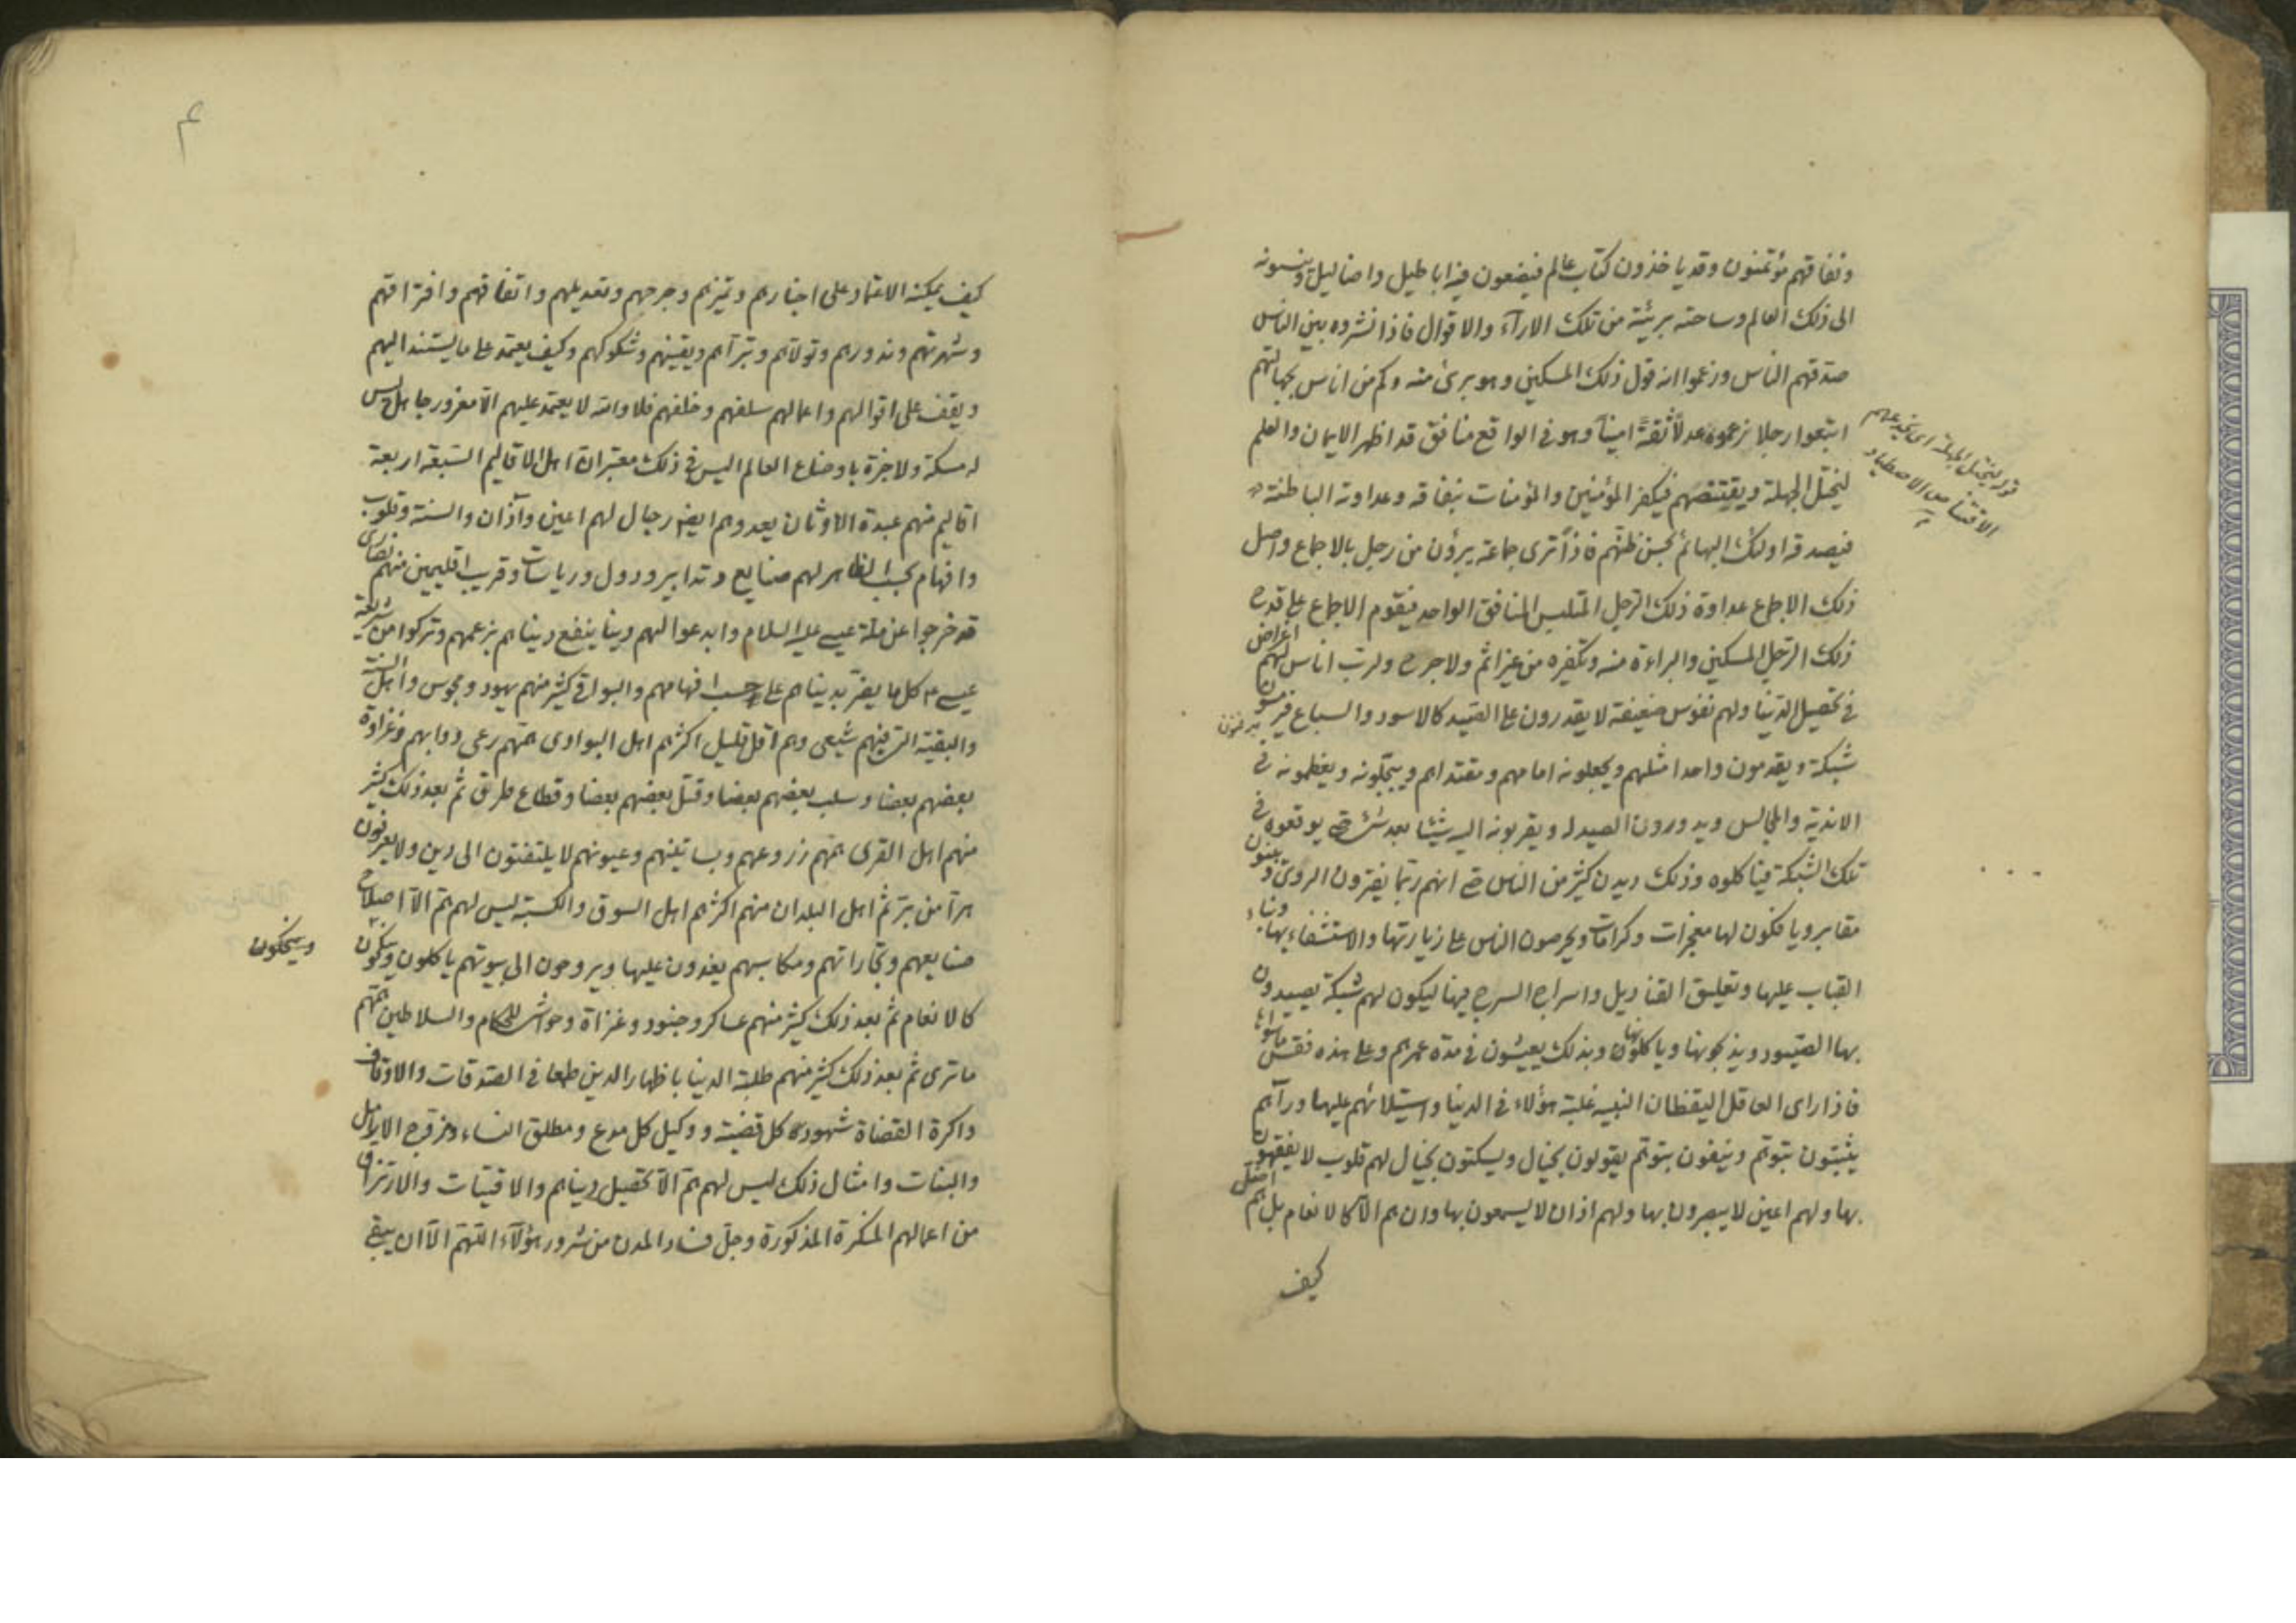 ونفاقهم مؤتمنون وقد ياخذون كتاب عالم فيضعون فيه اباطيل واضاليل وينسبونه
الى ذلك العالم وساحته بريئة من تلك الارآء والاقوال فاذا نشروه بين الناس
صدقهم الناس وزعموا انه قول ذلك المسكين وهو برئ منه وكم من اناس بجهالتهم
اتبعوا رجلا زعموه عدلاً ثقةً اميناً وهو في الواقع منافق قد اظهر الايمان والعلم
ليختل الجهلة ويقتنصهم فيكفر المؤمنين والمؤمنات بنفاقه وعداوته الباطنة
فيصدقه اولئك البهائم بحسن ظنهم فاذاً ترى جماعة يبرؤن من رجل بالاجماع واصل
ذلك الاجماع عداوة ذلك الرجل المتلبس المنافق الواحد فيقوم الاجماع على قدح
ذلك الرجل المسكين والبراءة منه وتكفيره من غير اثم ولا جرح ولرب اناس لهم اغراض
في تحصيل الدنيا ولهم نفوس ضعيفة لا يقدرون على الصيد كالاسود والسباع
شبكة ويقدمون واحدا مثلهم ويجعلونه امامهم ومقتداهم ويبجلونه ويعظمونه في
الاندية والمجالس ويدورون الصيد له ويقربونه اليه شيئا بعد شئ حتى يوقعوه في
تلك الشبكة فياكلوه وذلك ديدن كثير من الناس حتى انهم ربما يفترون الروى ويبنون
مقابر ويافكون لها معجزات وكرامات ويحرصون الناس على زيارتها والاستشفاء بها وبناء
القباب عليها وتعليق القناديل واسراج السرج فيها ليكون لهم شبكة يصيدون
بها الصيود ويذبحونها وياكلونها وبذلك يعيشون في مدة عمرهم وعلى هذه فقس ماسواها
فاذا راى العاقل اليقظان النبيه غلبة هؤلاء في الدنيا واستيلائهم عليها ورآهم
يثبتون بتوهم وينفون بتوهم يقولون بخيال ويسكتون بخيال لهم قلوب لا يفقهون
بها ولهم اعين لا يبصرون بها ولهم اذان لا يسمعون بها وان هم الا كالانعام بل هم اضل
كيف
قوله ليختل الجهلة اى يخدعهم
الاقتناص الاصطياد
كيف يمكنه الاعتماد على اخبارهم وتميزهم وجرحهم وتعديلهم واتفاقهم وافتراقهم
وشهرتهم وندورهم وتولاهم وتبرآهم ويقينهم وشكوكهم وكيف يعتمد على ما يستند اليهم
ويقف على اقوالهم واعمالهم سلفهم وخلفهم فلا والله لا يعتمد عليهم الا مغرور جاهل ليس
له مسكة ولا خبرة باوضاع العالم اليس في ذلك معتبر ان اهل الاقاليم السبعة اربعة
اقاليم منهم عبدة الاوثان يعد وهم ايضا رجال لهم اعين وآذان والسنة وقلوب
وافهام بحسب الظاهر لهم صنايع وتدابير ودول ورياسات وقريب اقليمين منهم نصارى
قد خرجوا عن ملة عيسى عليه السلام وابدعوا لهم دينا ينفع دنياهم بزعمهم وتركوا من شريعة
عيسى ع كل ما يضر بدنياهم على حسب افهامهم والبواقي كثير منهم يهود ومجوس واهل السنة
والبقية التي فيهم شيعى وهم اقل قليل اكثرهم اهل البوادى همهم رعى دوابهم وغزاوة
بعضهم بعضا وسلب بعضهم بعضا وقتل بعضهم بعضا وقطاع طرق ثم بعد ذلك كثير
منهم اهل القرى همهم زروعهم وبساتينهم وعيونهم لا يلتفتون الى دين ولا يعرفون
هرا من بر ثم اهل البلدان منهم اكثرهم اهل السوق والكسبة ليس لهم هم الا اصلاح
صنايعهم وتجاراتهم ومكاسبهم يغدون عليها ويروحون الى بيوتهم ياكلون وينكحون
كالانعام ثم بعد ذلك كثير منهم عساكر وجنود وغزاة وحواشى للحكام والسلاطين همهم
ما ترى ثم بعد ذلك كثير منهم طلبة الدنيا باظهار الدين طمعا في الصدقات والاوقاف
واكرة القضاة شهود كل قضية ووكيل كل مدع ومطلق النساء ومزوج الارامل
والبنات وامثال ذلك ليس لهم هم الا تحصيل دنياهم والاقتيات والارتزاق
من اعمالهم المنكرة المذكورة وجل فساد المدن من شرور هؤلآء اللهم الا ان يبقى
وينكحون